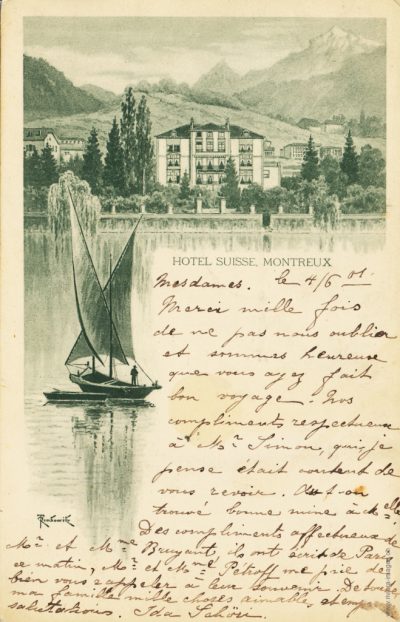 HOTEL SUISSE, MONTREUX
Mesdames. le 4/6 01.
Merci mille fois
de ne pas nous oublier
et sommes heureuse
que vous ayez fait
bon voyage. Nos
compliments respectueux
à Mr Simon, qui je
pense était content de
vous revoir. A-t-on
trouvé bonne mine à Melle
Des compliments affectueux de
Mr. et Mme Bruyant, ils ont écrit de Paris
ce matin, Mr. et Mme Pétroff me prie de
bien vous rappeler à leur souvenir. De toute
ma famille mille choses aimables, et
salutations. Ida